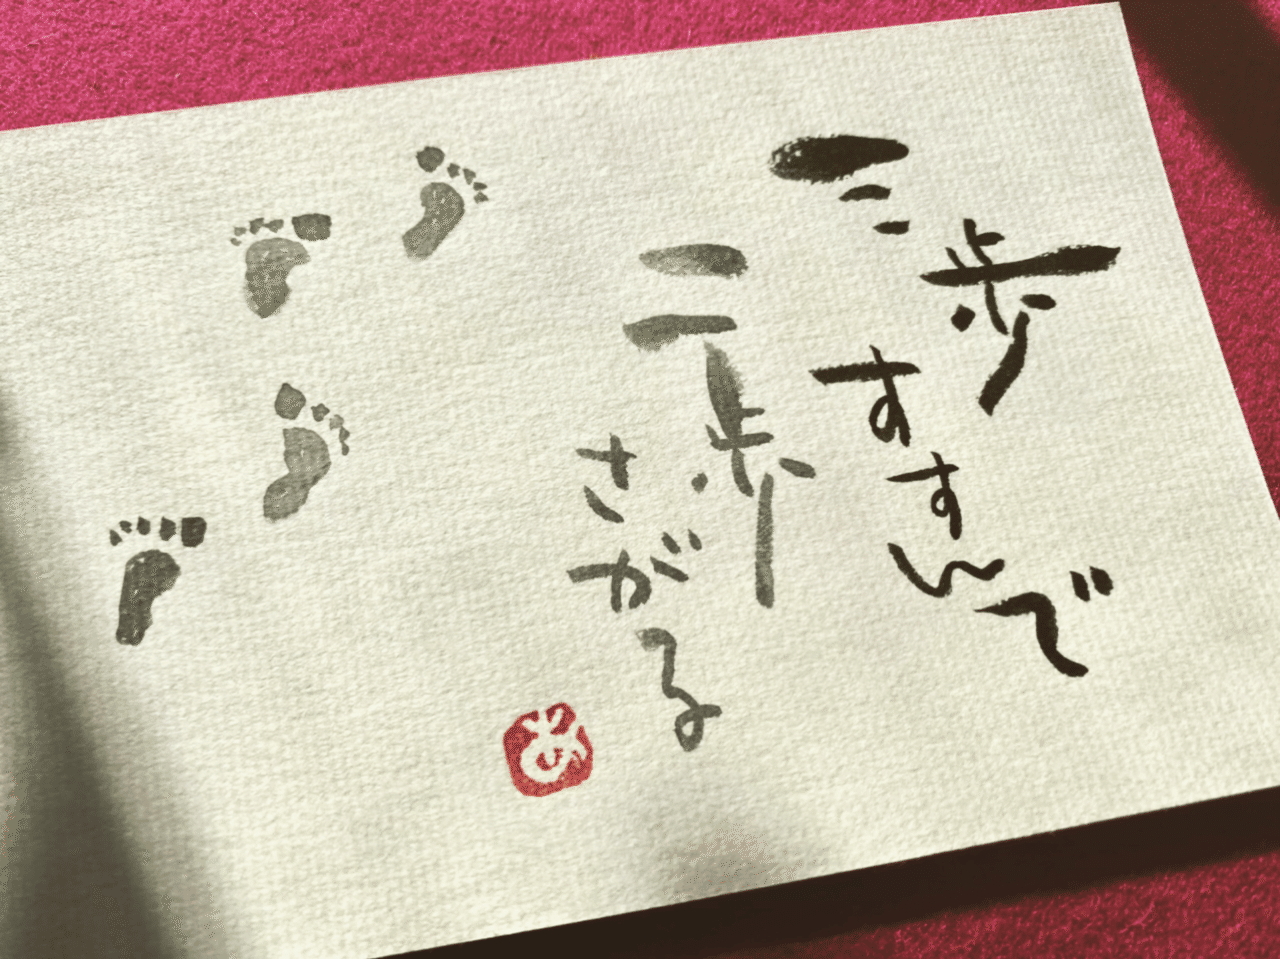 三歩すすんで
二歩さがる